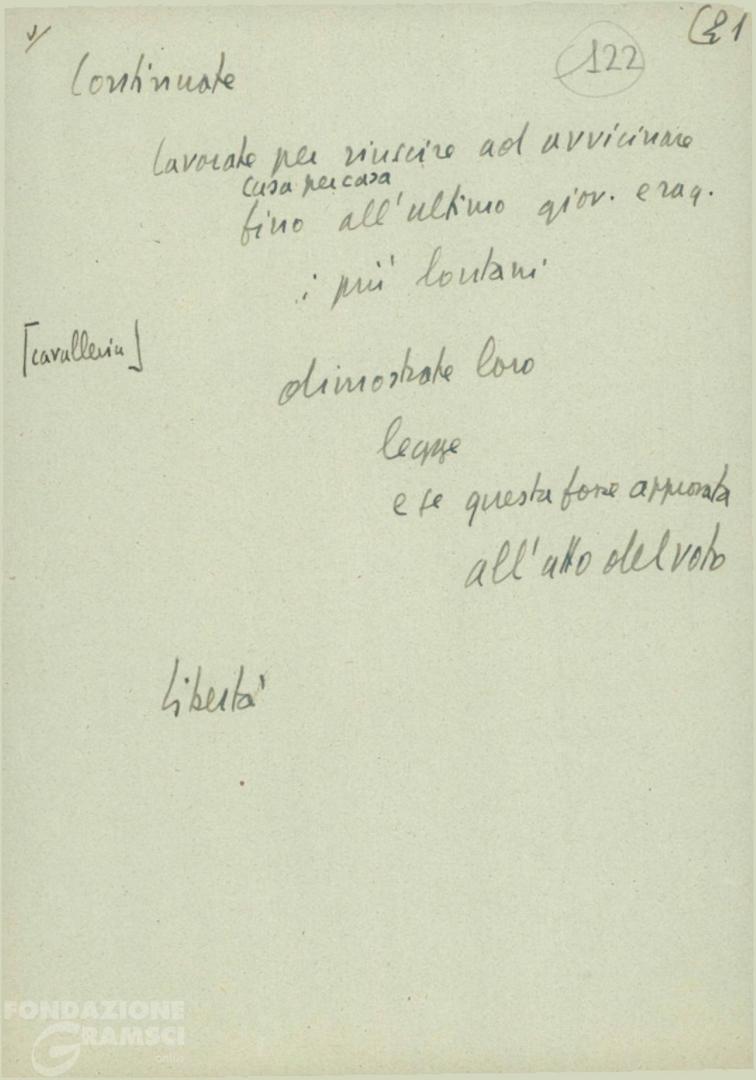 122
Continuate
lavorate per riuscire ad avvicinare
casa per casa
fino all'ultimo giov. e rag.
i più lontani
[cavalleria]
dimostrate loro
legge
e se questa fosse approvata
all'atto del voto
Libertà
FONDAZIONE
GRAMSCI
onlus